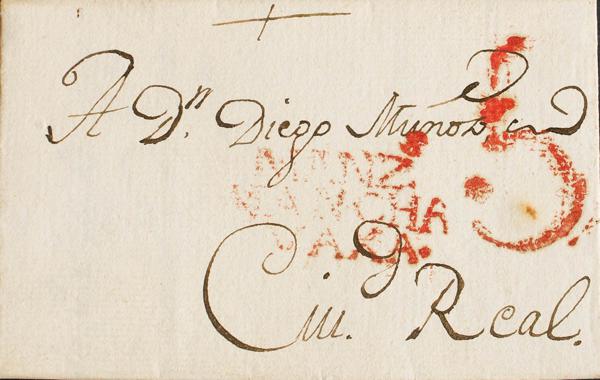 A Dn. Diego Muñoz, en
5
MANZ.
MANCHA
BAXA.
Ciu.d Real.